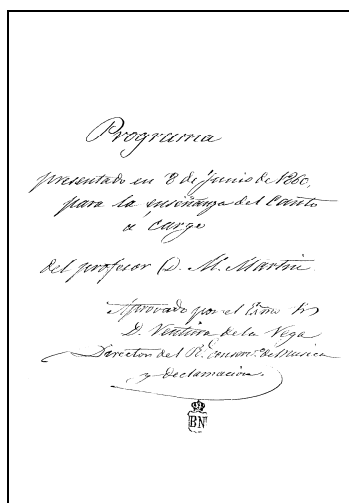 Programa
presentado en 8 de junio de 1860,
para la enseñanza del Canto
a cargo
del profesor D. M. Martin
Aprovado por el Exmo Sr
D. Ventura de la Vega
Director del Rl. Conserv.º de Musica
y Declamacion.
BN